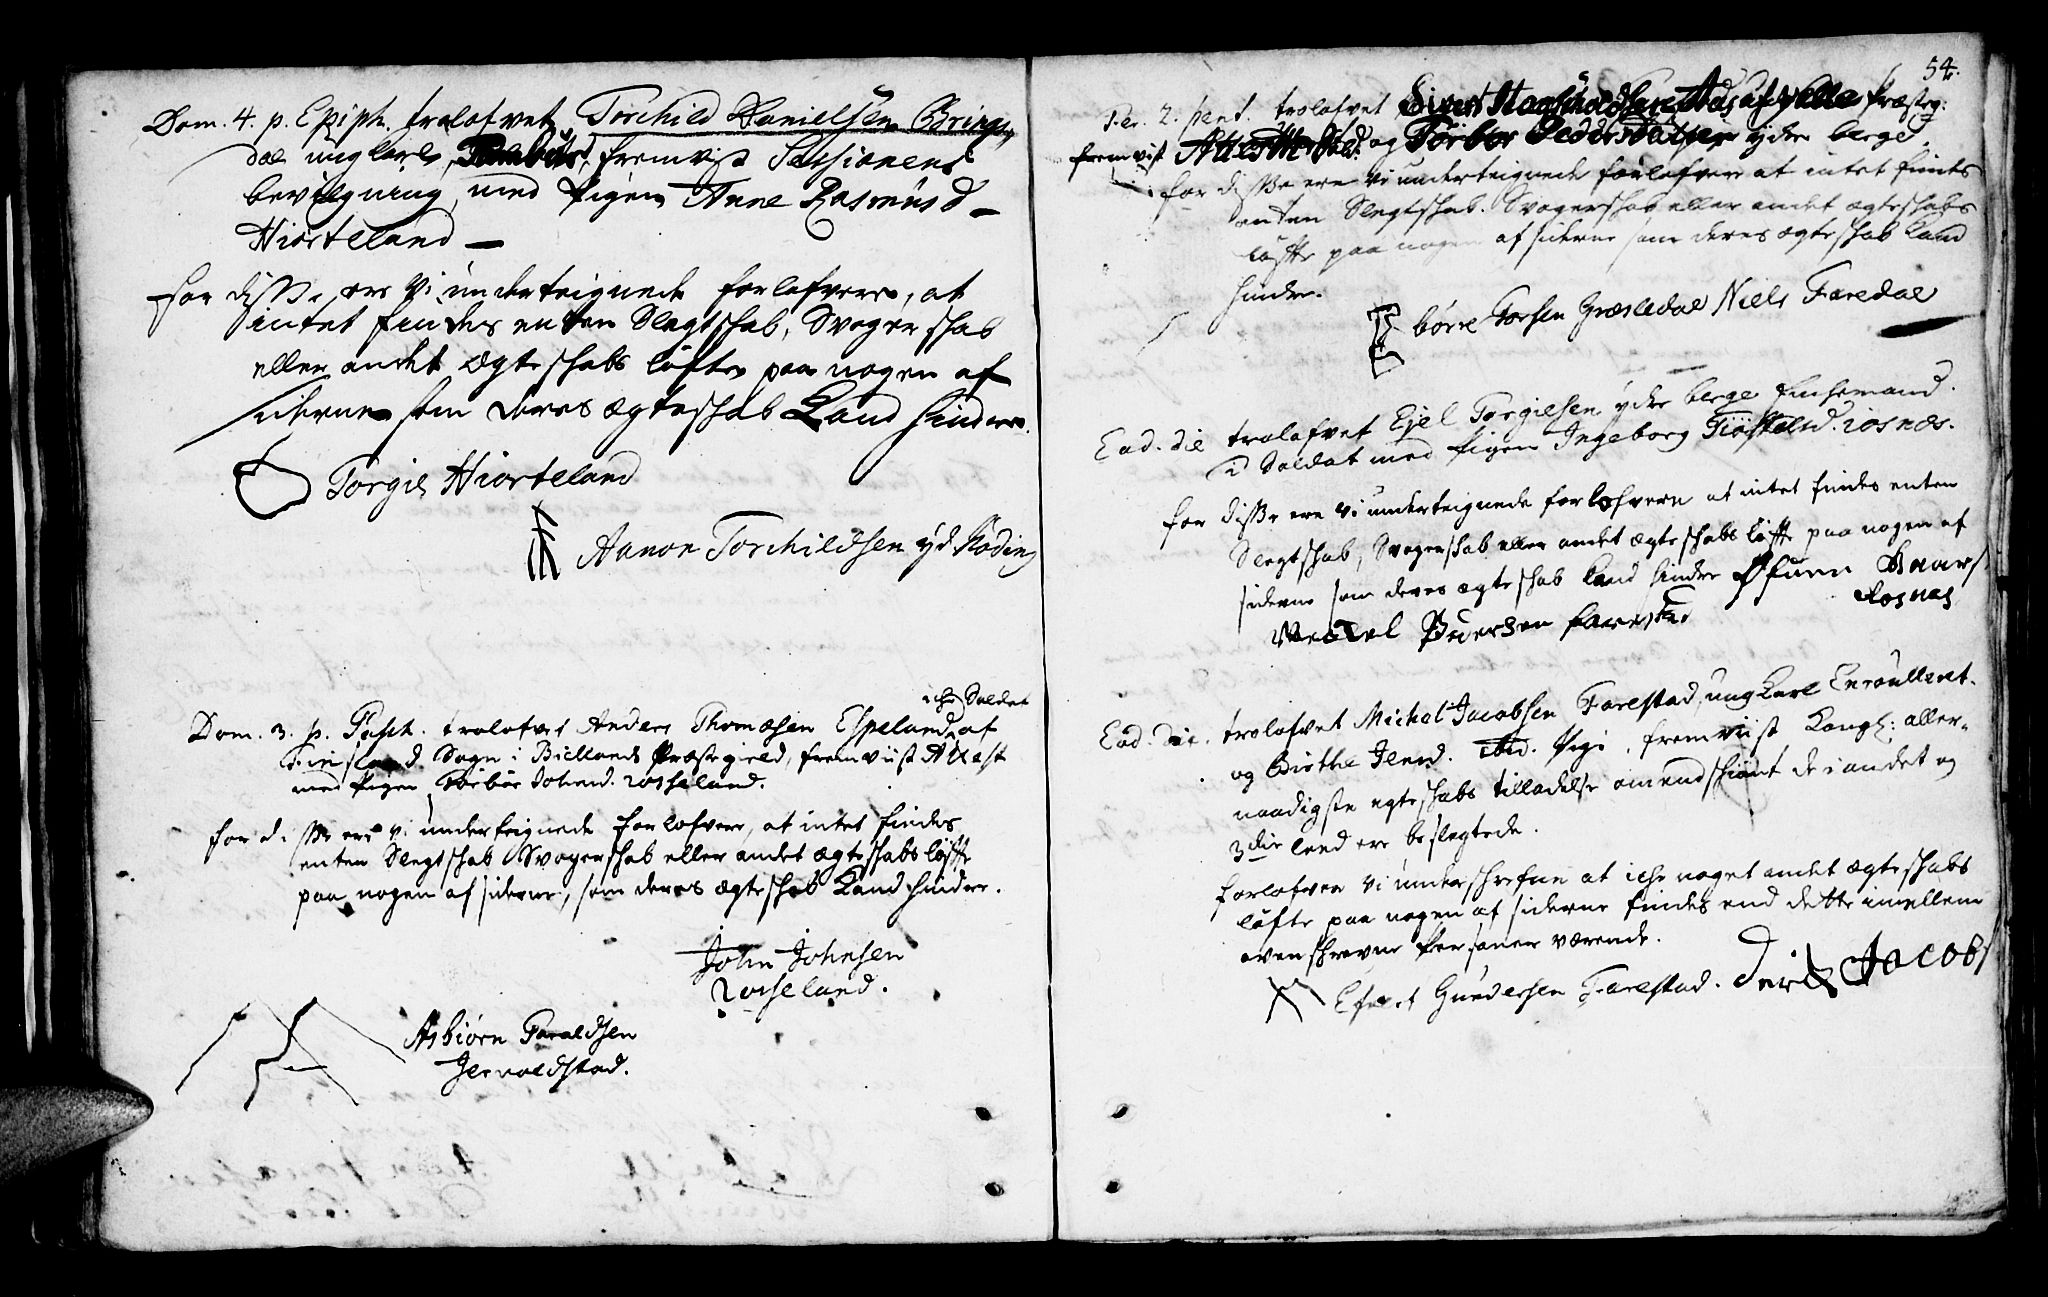 Dom. 4. p. Epiph. trolofvet Torchild Danielsen Brings-
dal ungkarl, fremvist Sessionens
bevilgning, med Pigen Anne Rasmusd
Hiorteland —
for disse ere vi underteignede forlofvere, at
intet findes enten Slegtskab, Svogerskab
eller andet Ægteskabs løfte paa nogen af
siderne som deres ægteskab Kand hindre.
Torgil Hiorteland
Aanon Torchildsen yd Roding
Soldat
Dom. 3. p. Pasch. trolofvet Anders Thomæsen Espeland af
Finsland Sogn i Biellands Præstegield, fremviist Attest
med Pigen Torbor Johnsd. Rosseland.
for disse ere vi underteignede forlofvere, at intet findes
enten Slegtskab Svogerskab eller andet ægteskabs løfte
paa nogen af siderne, som deres ægteskab Kand hindre.
John Johnsen
Rosseland.
Asbiørn Taraldsen
Jernoldstad.
54.
Fer. 2. Pent. trolofvet Sivert af Præsteg:
fremvist Attest og Torbor Pedersdatter ydre berge
for disse ere vi underteignede forlofvere at intet findes
enten Slegtskab. Svogerskab eller andet ægteskabs
løfte paa nogen af siderne som deres ægteskab Kand
hindre.
børre Torsen Græsledal Niels Faredal
Ead. die trolofvet Ejel Torgiesen ydre berge Enkemand.
i Soldat med Pigen Ingeborg Tiøstelsd. Rosnæs.
for disse ere vi underteignede forlofvere at intet findes enten
Slegtskab, Svogerskab eller andet ægteskabs løfte paa nogen af
siderne som deres ægteskab Kand hindre Øfuen Haars
Rosnæs
Pedersen farestad
Ead. die. trolofvet Michel Jacobsen Farestad, ungkarl Enroulleret.
og Birthe Jensd. ibid. Pige, fremviist Kongl: aller-
naadigste egteskabs tilladelse omendskiønt de i andet og
3die leed ere beslegtede.
forlofver vi underskrefne at icke noget andet ægteskabs
løfte paa nogen af siderne findes end dette imellem
ovenskrevne Personer værende.
Efvert Gundersen Farestad. Jacobs